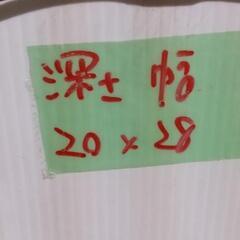 深さ 幅
20×28